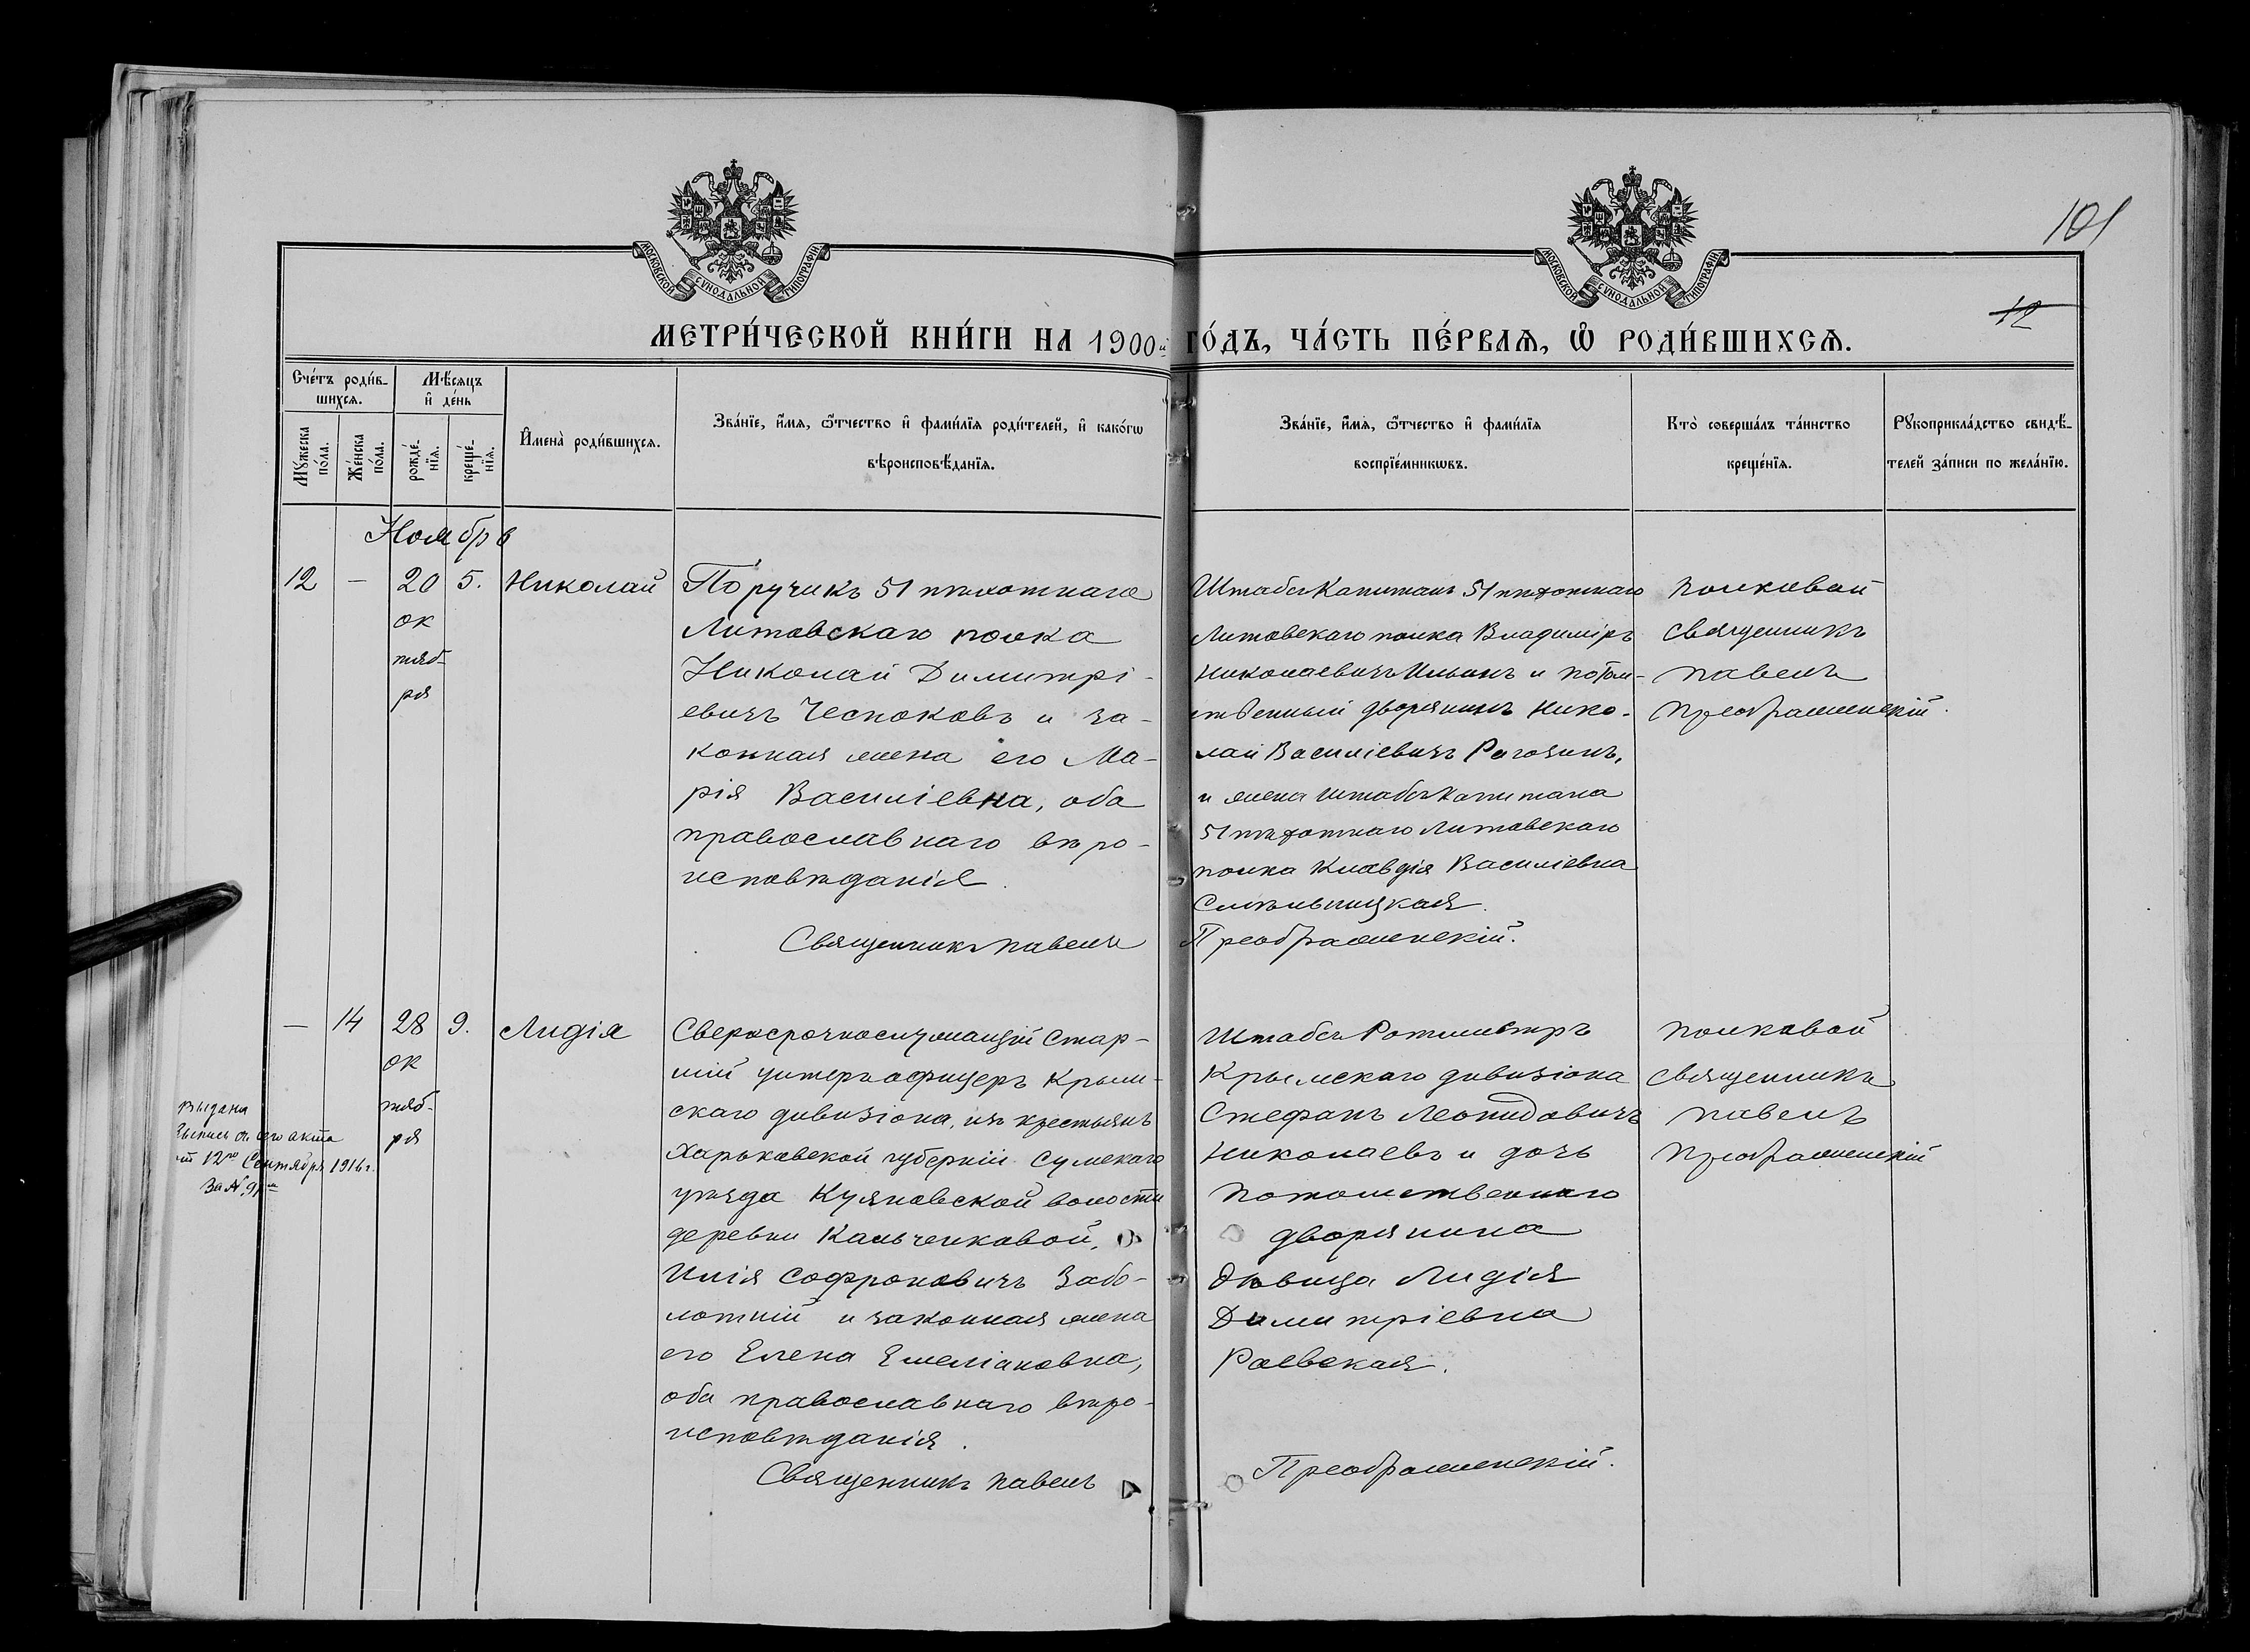 101
12
МОСКОВСКОЙ СѴНОДАЛЬНОЙ ТИПОГРАФІИ
МОСКОВСКОЙ СѴНОДАЛЬНОЙ ТИПОГРАФІИ
МЕТРИ́ЧЕСКОЙ КНИ́ГИ НА 1900й ГО́ДЪ, ЧА́СТЬ ПЕ́РВАѦ, Ѡ҆ РОДИ́ВШИХСѦ.
Сче́тъ роди́в-
шихсѧ.
Мѣ́сѧцъ
и҆ де́нь
Мꙋ́жеска по́ла.
Же́нска по́ла.
рожде́-
нїѧ.
креще́-
нїѧ.
И҆мена̀ роди́вшихсѧ.
Зва́нїе, и҆́мѧ, ѻ҆́тчество и҆ фами́лїѧ роди́телей, и҆ како́гѡ
вѣроисповѣ́данїѧ.
Зва́нїе, и҆́мѧ, ѻ҆́тчество и҆ фами́лїѧ
воспрїе́мникѡвъ.
Кто̀ соверша́лъ та́инство
креще́нїѧ.
Рꙋкоприкла́дство свидѣ́-
телей за́писи по жела́нїю.
Ноябрь
12 — 20 5. Николай
ок
тяб-
ря
Поручикъ 51 пѣхотнаго
Литовскаго полка
Николай Димитрі-
евичъ Чесноковъ и за-
конная жена его Ма-
рія Василіевна, оба
православнаго вѣро-
исповѣданія.
Священникъ Павелъ
Штабсъ Капитанъ 51 пѣхотнаго
Литовскаго полка Владиміръ
Николаевичъ Ильинъ и потом-
ственный дворянинъ Нико-
лай Василіевичъ Рагозинъ,
и жена Штабсъ Капитана
51 пѣхотнаго Литовскаго
полка Клавдія Василіевна
Преображенскій.
Полковой
Священникъ
Павелъ
Преображенскій.
— 14 28 9. Лидія
ок
тяб-
ря
Выдана
выпись от сего акта
12го Сентября 1916 г.
За №
Сверхсрочнослужащій Стар-
шій унтеръ офицеръ Крым-
скаго дивизіона, изъ крестьянъ
Харьковской губерніи Сумскаго
уѣзда Куяновской волости
деревни Кальченковой,
Илія Софроновичъ Забо-
лотній и законная жена
его Елена Емеліановна,
оба православнаго вѣро-
исповѣданія.
Священникъ Павелъ
Штабсъ Ротмистръ
Крымскаго дивизіона
Стефанъ Леонидовичъ
Николаевъ и дочь
потомственнаго
дворянина
дѣвица Лидія
Димитріевна
Раевская.
Преображенскій.
Полковой
Священникъ
Павелъ
Преображенскій